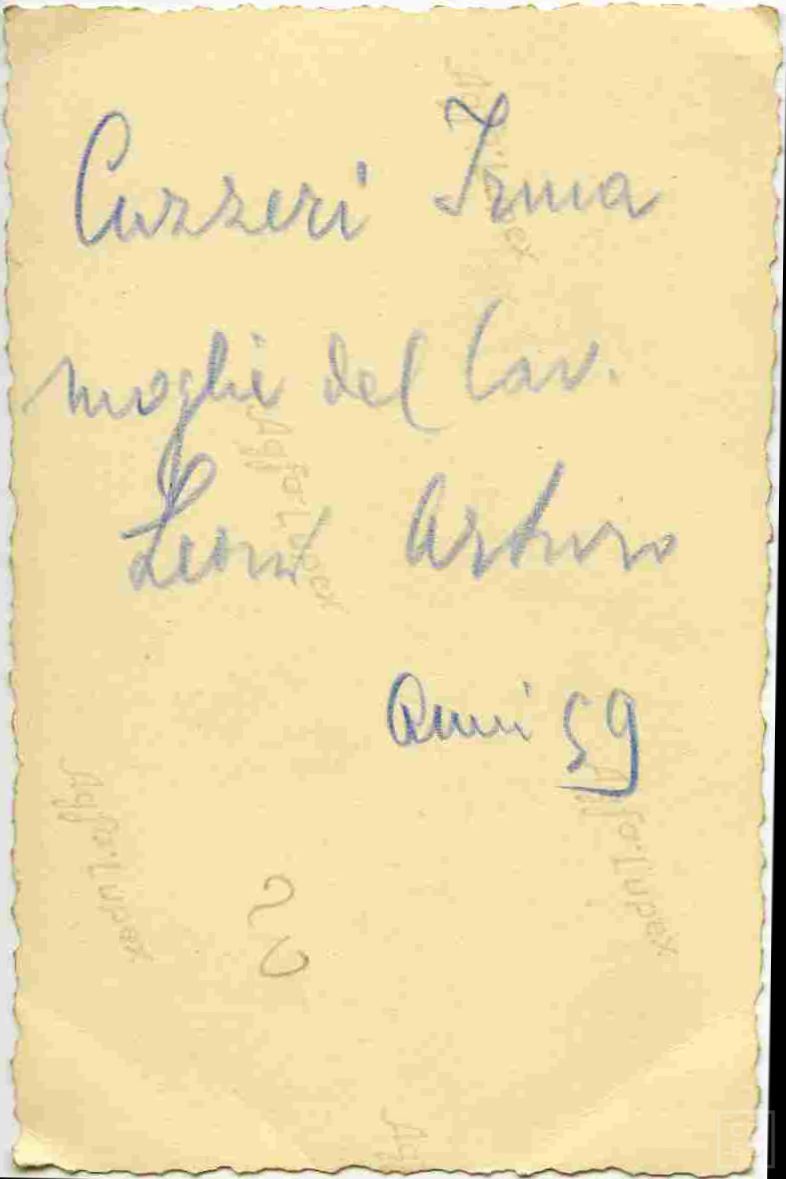 Cuzzeri Irma
moglie del Cav.
Leoni Arturo
Anni 59
Agfa-Lupex
Agfa-Lupex
Agfa-Lupex
Agfa-Lupex
Ag